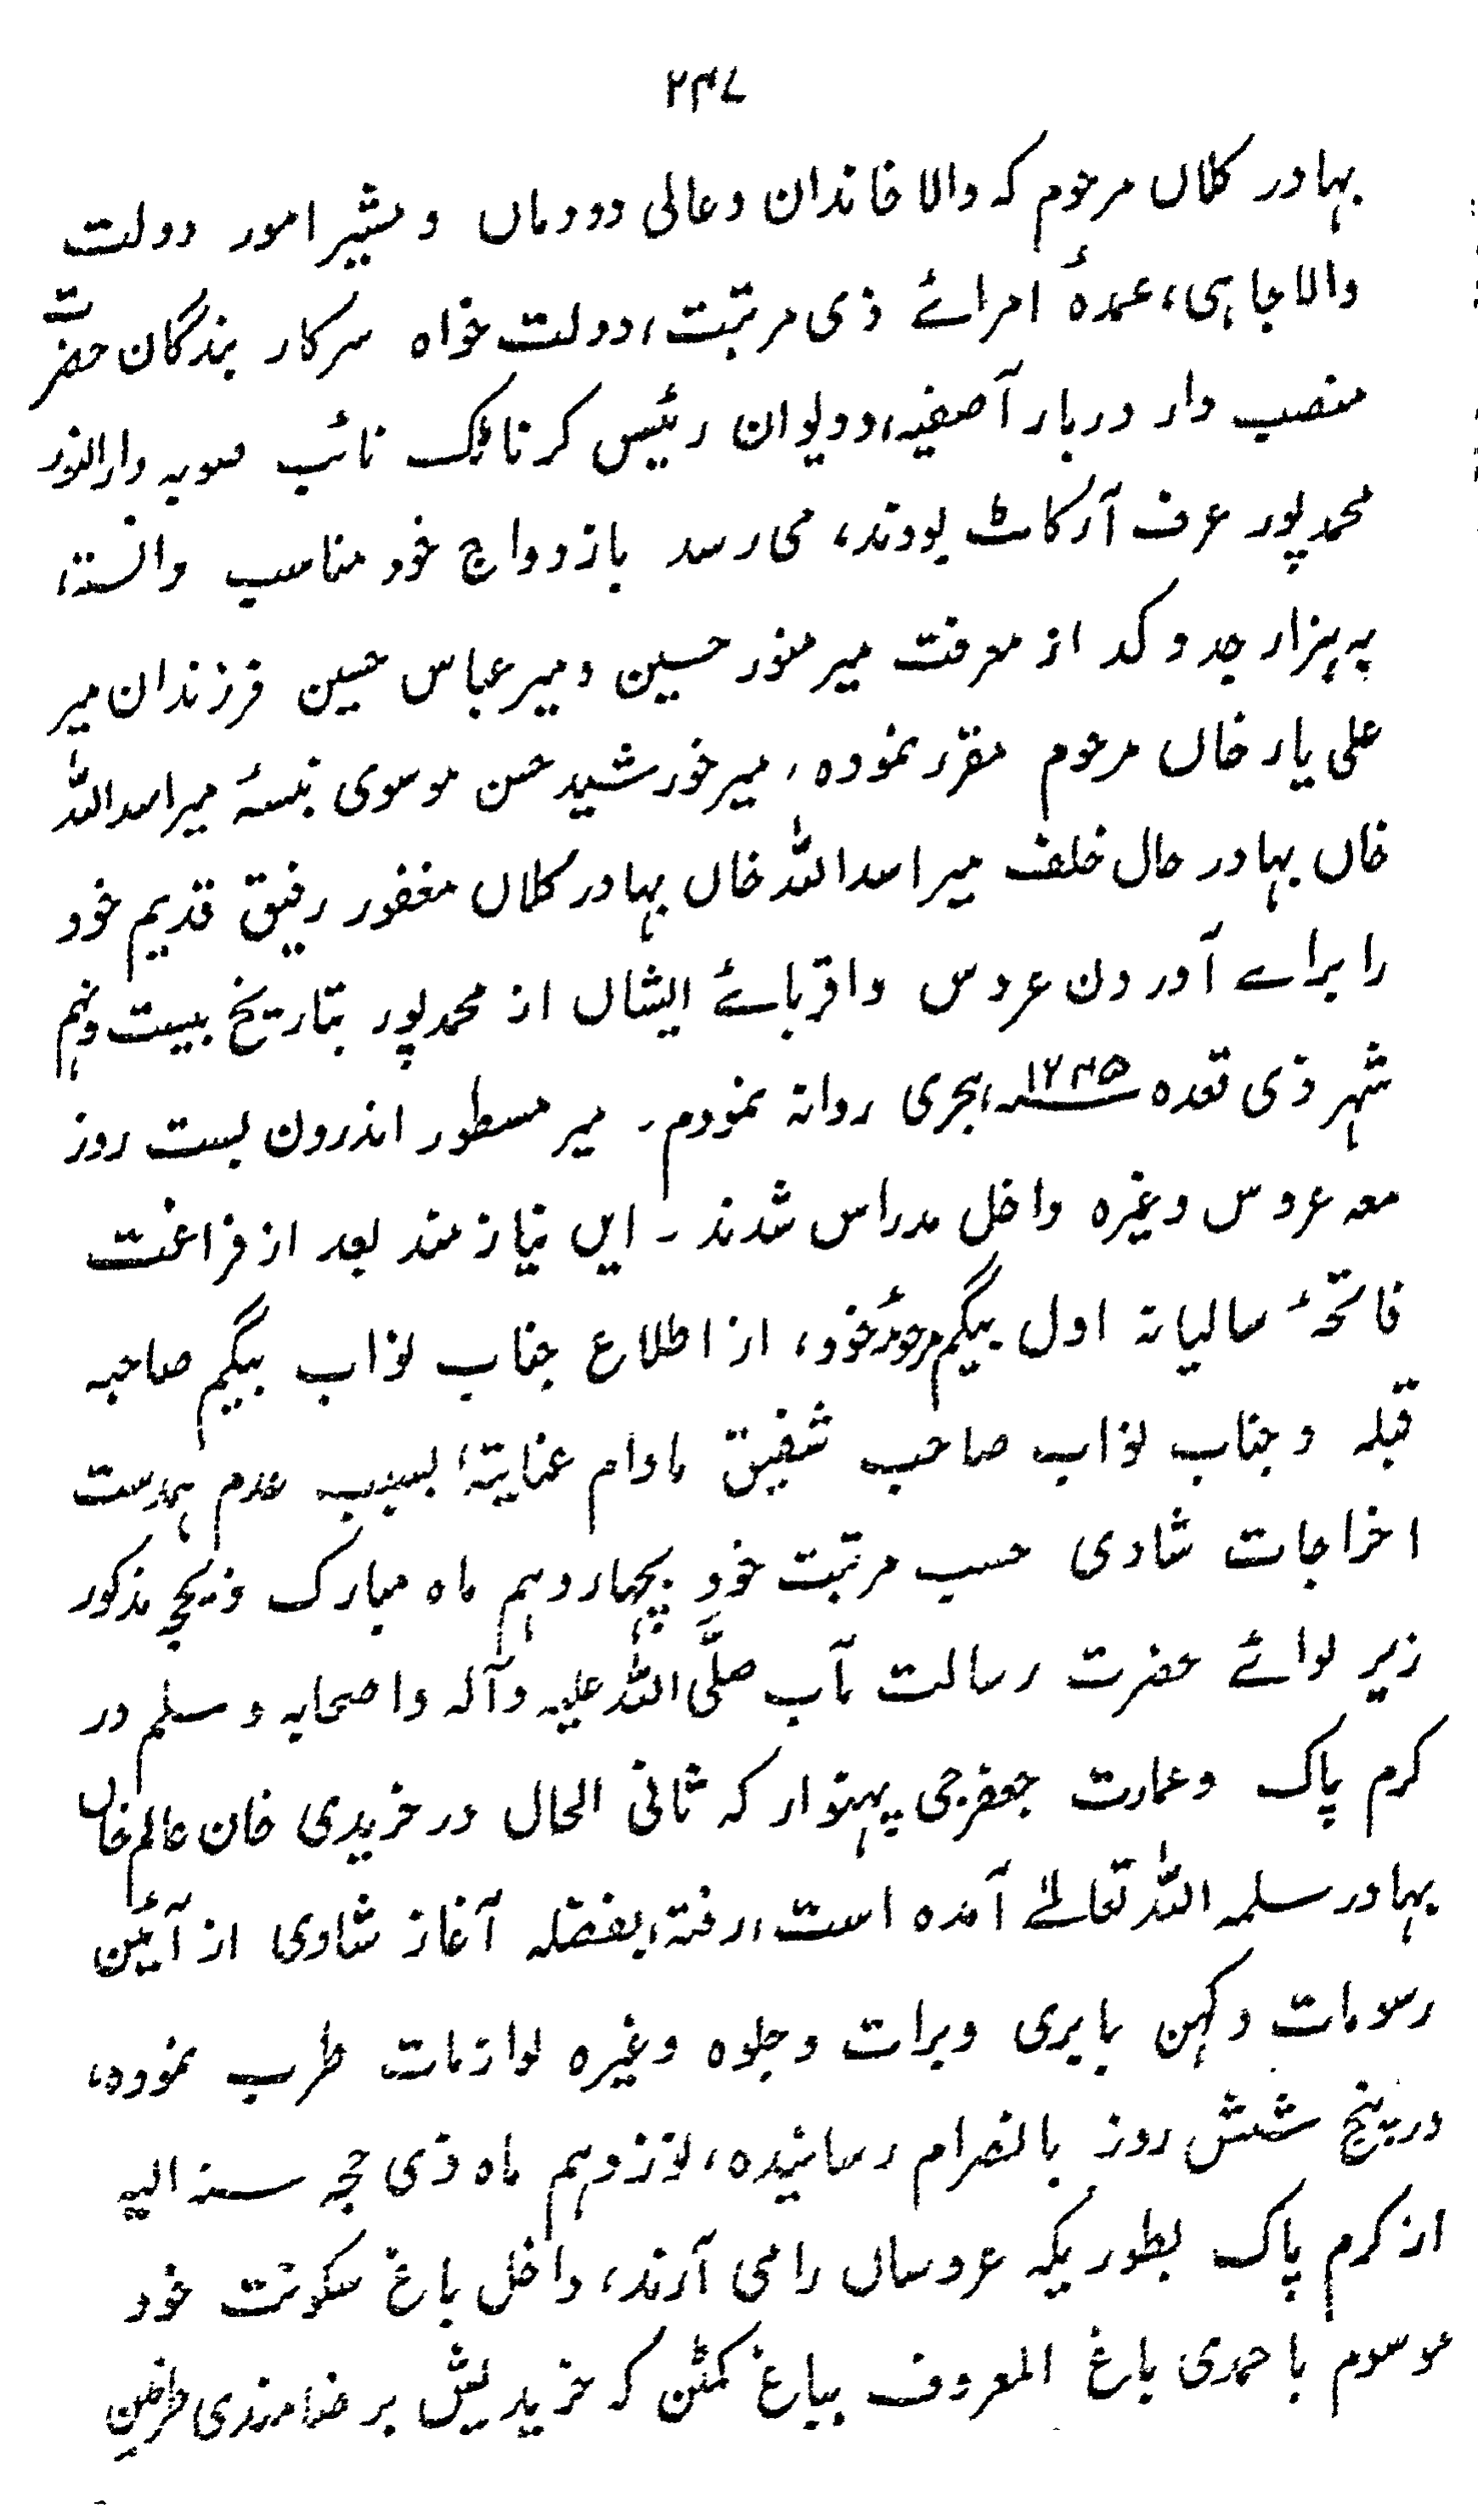 ۲۳۷
بہادر کلاں مرحوم کہ والا خاندان و عالی دودماں و مشیر امور دولت
والا جاہی، عمدۂ امرائے ذی مرتبت، دولت خواہ سرکار بندگان حضرت
منصب دار دربار آصفیہ، ودیوان رئیس کرناٹک نائب صوبہ دار النور
محمد پور عرف آرکاٹ بودند، می رسد بازدواج خود مناسب دانستہ،
بہ ہزار جد و کد از معرفت میر منور حسین و میر عباس حسین فرزندان میر
علی یار خاں مرحوم مقرر نمودہ، میر خورشید حسن موسوی نبسۂ میر اسد اللہ
خاں بہادر حال خلف میر اسد اللہ خاں بہادر کلاں مغفور رفیق قدیم خود
را براے آوردن عروس و اقربائے ایشاں از محمد پور بتاریخ بیست و نہم
شہر ذی قعدہ ۱۲۴۵؁ ہجری روانہ نمودم۔ میر مسطور اندرون بست روز
معہ عروس وغیرہ داخل مدراس شدند۔ ایں نیاز مند بعد از فراغت
فاتحۂ سالیانہ اول بیگم مرحومۂ خود، از اطلاع جناب نواب بیگم صاحبہ
قبلہ و جناب نواب صاحب شفیق مادام عنایتہٗ بسبب عدم ہمدست
اخراجات شادی حسب مرتبت خود بچہاردہم ماہ مبارک ذیحجہ مذکور
زیر لوائے حضرت رسالت مآب صلّی اللہ علیہ وآلہ واصحابہ وسلم در
کرم پاک و عمارت جعفرجی پہنوار کہ ثانی الحال در خریدی خان عالم خاں
بہادر سلمہ اللہ تعالےٰ آمدہ است، رفتہ، بفضلہ آغاز شادی از آئین
رسومات دکہن بابری و برات و جلوہ وغیرہ لوازمات طرب نمودہ،
در پنج شش روز بانصرام رسانیدہ، نوزدہم ماہ ذی حجہ سنہ الیہ
از کرم پاک بطوریکہ عروساں را می آرند، داخل باغ سکونت خود
موسوم باحمدی باغ المعروف بباغ کمٹن کہ خریدیش برضامندی طرفین